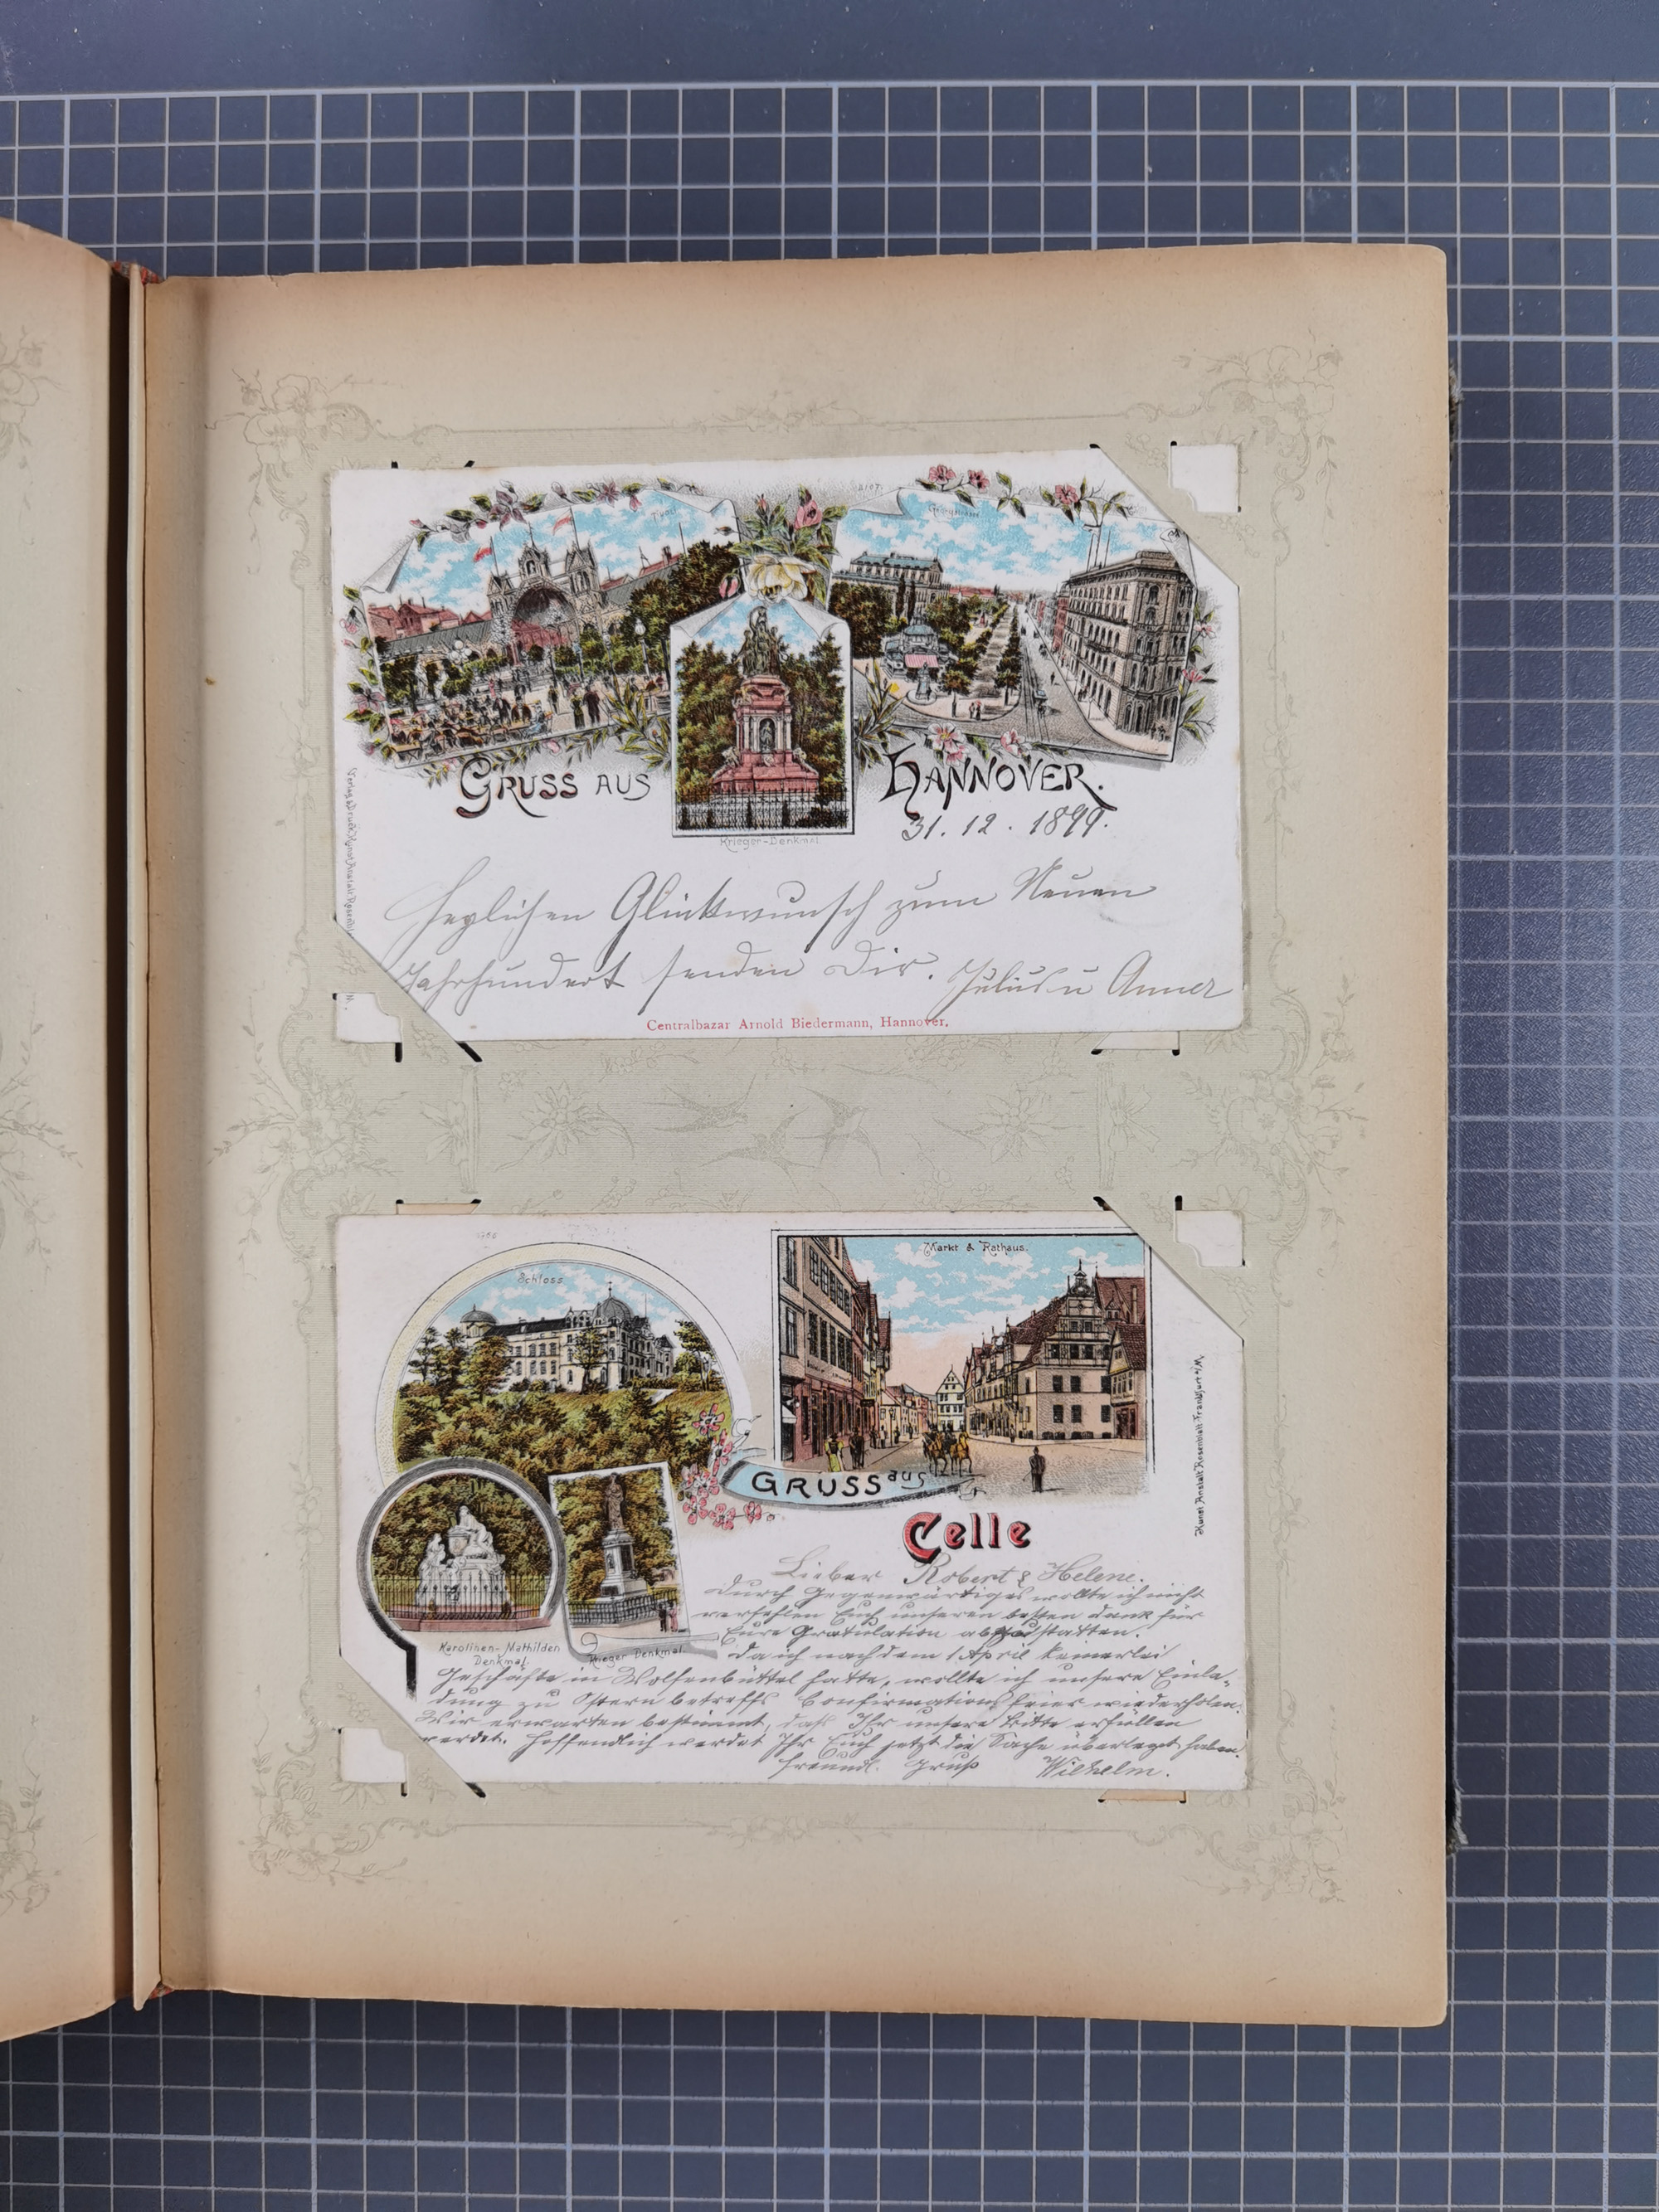 Tivoli
2107.
Georgstrasse
GRUSS AUS HANNOVER.
31. 12. 1899.
Krieger-Denkmal.
Herzlichen Glückwunsch zum Neuen
Jahrhundert senden Dir. Julius u Anna
Centralbazar Arnold Biedermann, Hannover.
Schloss
Markt & Rathaus.
GRUSS aus
Celle
Karolinen-Mathilden
Denkmal.
Krieger Denkmal.
Kunst Anstalt Rosenblatt Frankfurt a/M.
Lieber Robert & Helene.
Durch Gegenwärtiges wollte ich nicht
verfehlen Euch unseren besten Dank für
Eure Gratulation abzustatten.
Da ich nach dem 1 April keinerlei
Geschäfte in Wolfenbüttel hatte, wollte ich unsere Einla-
dung zu Ostern betreffs Confirmationsfeier wiederholen.
Wir erwarten bestimmt, daß Ihr unsere Bitte erfüllen
werdet. Hoffendlich werdet Ihr Euch jetzt die Sache überlegt haben.
Freundl. Gruß Wilhelm.